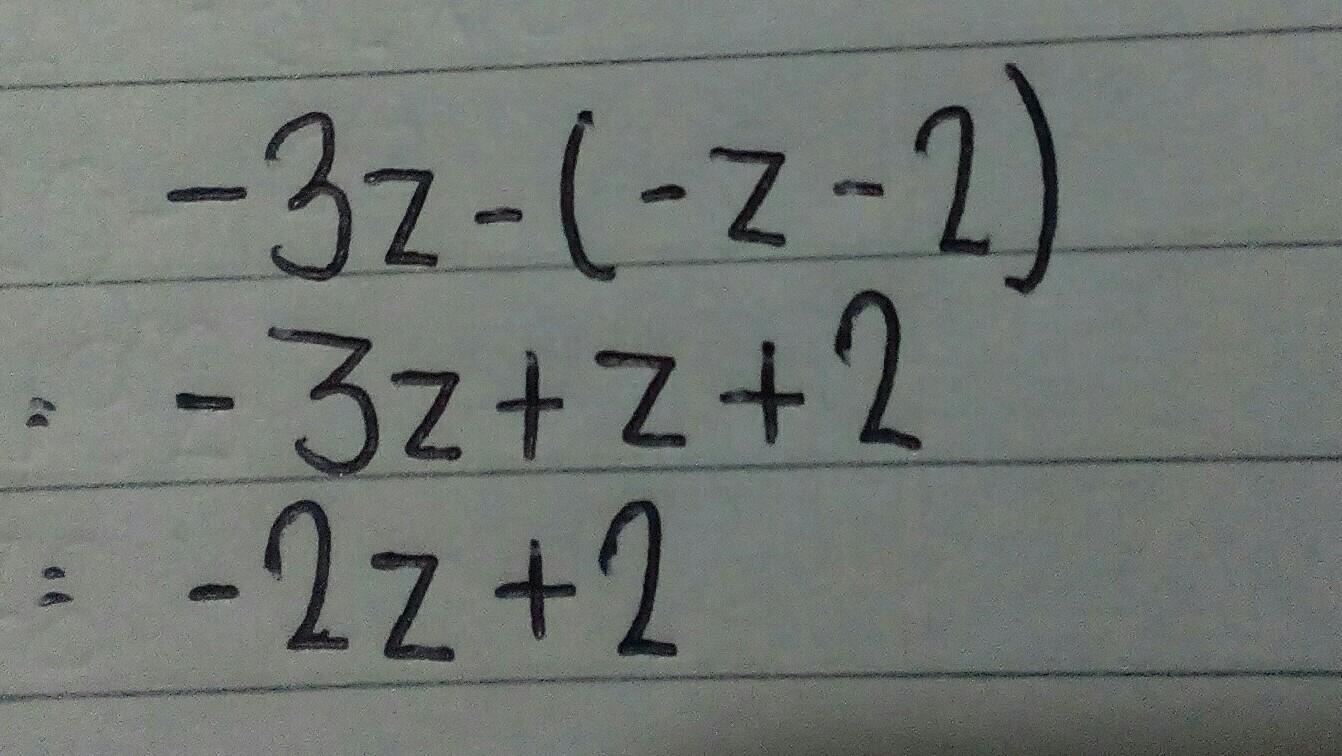 -3z-(-z-2)
= -3z+z+2
= -2z+2